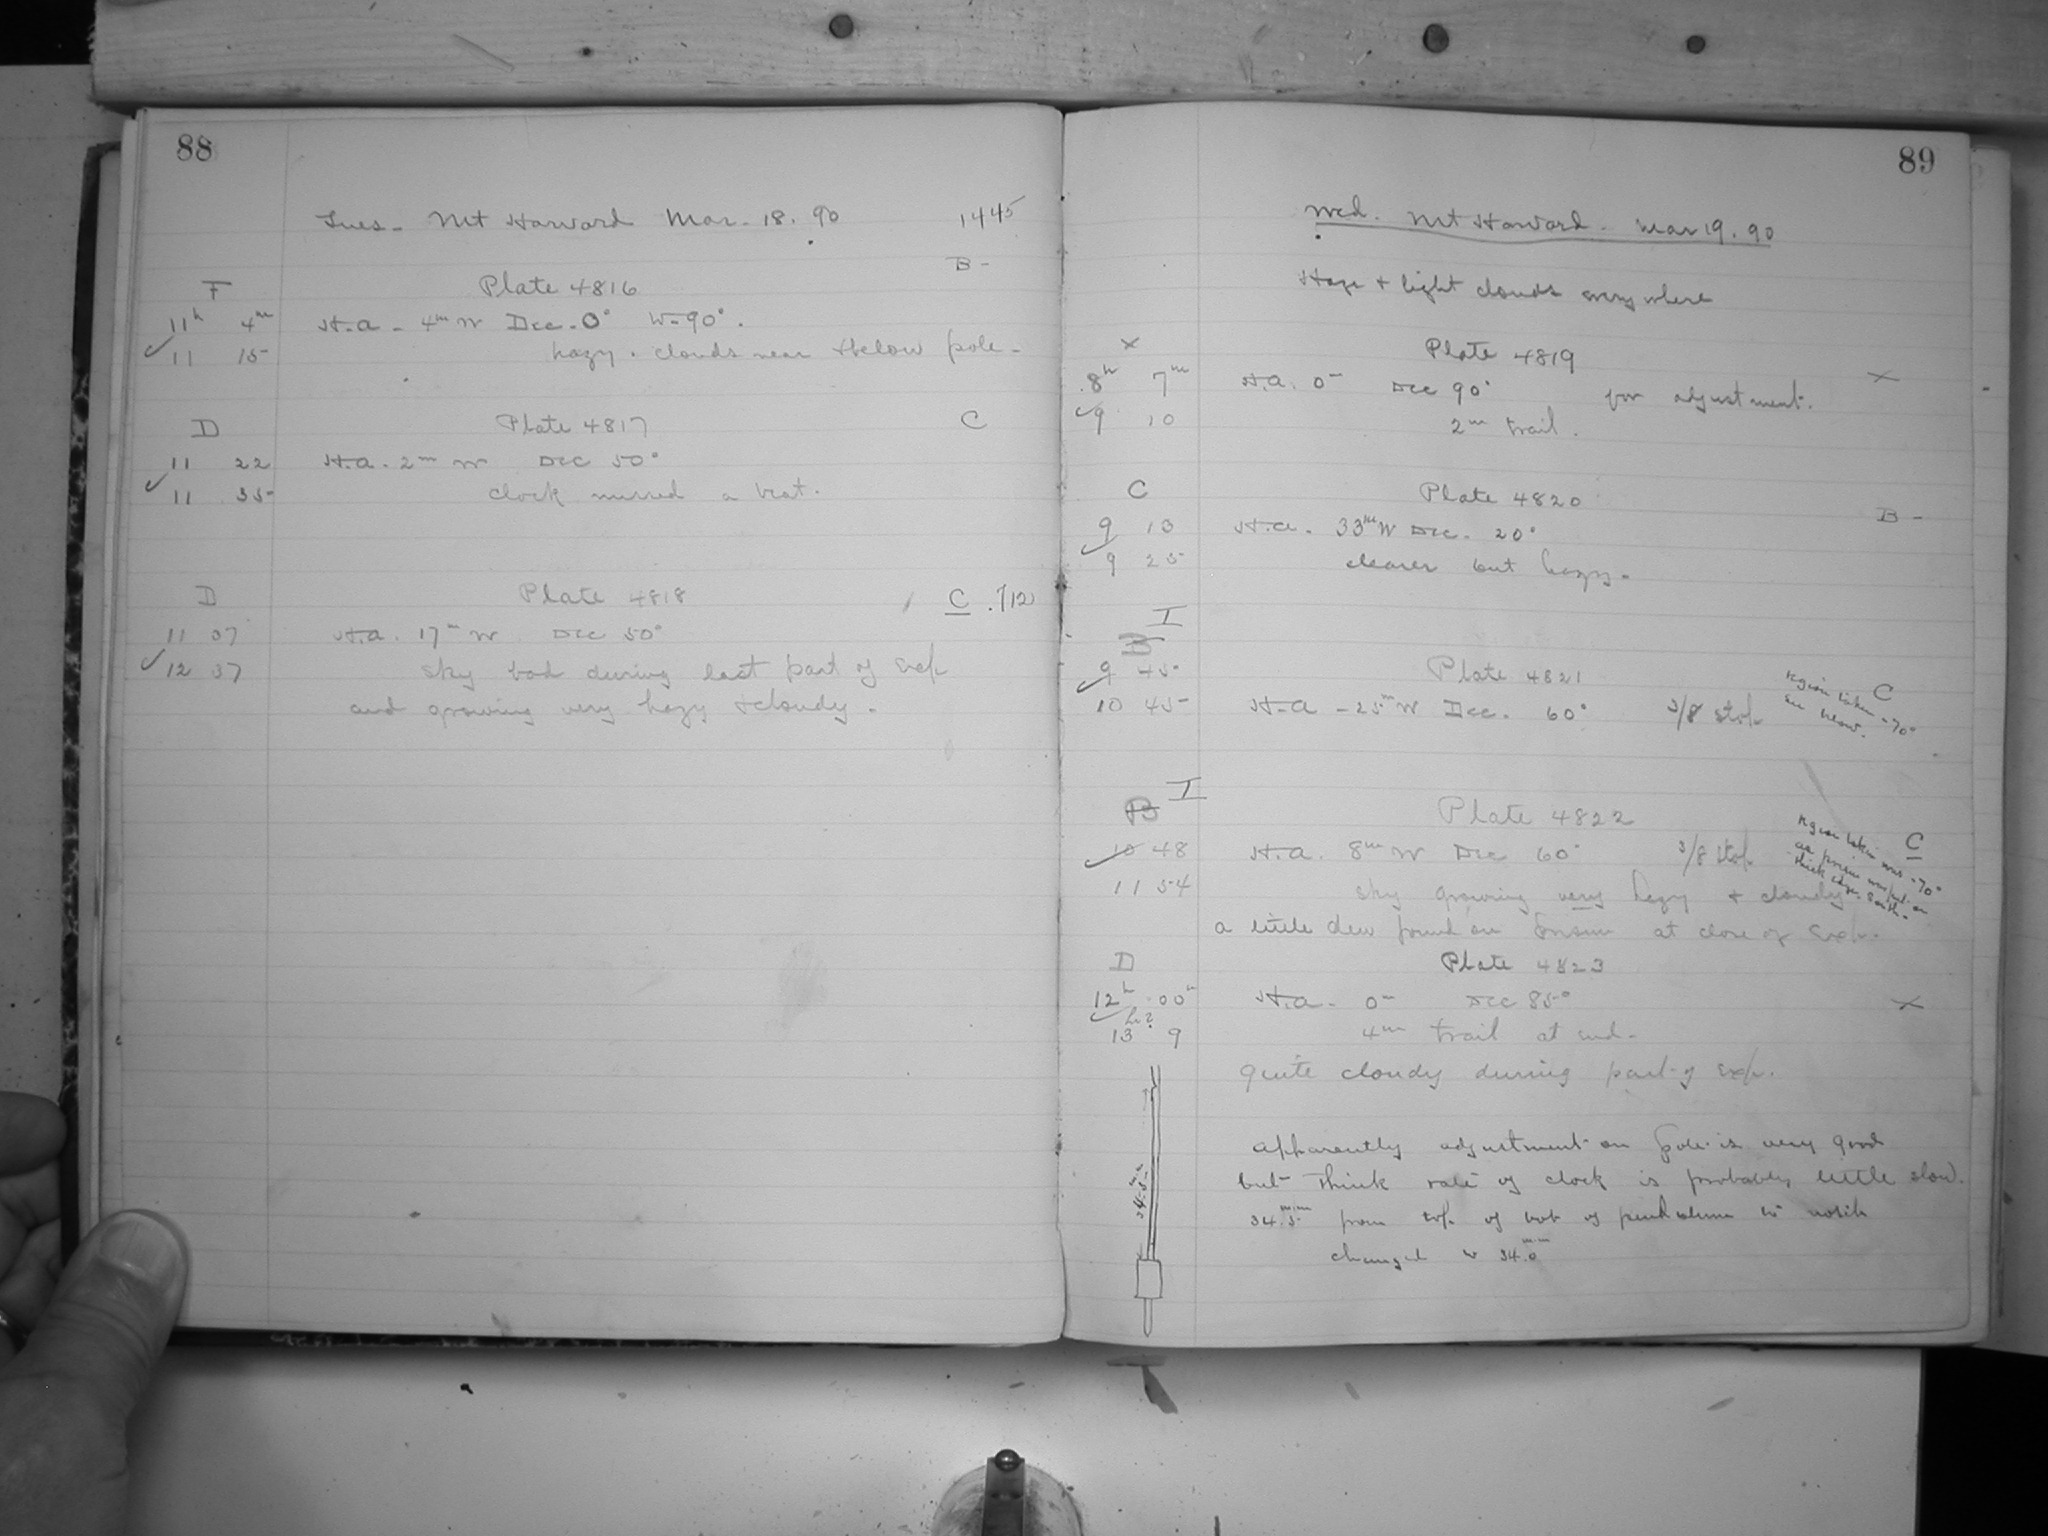 88
Tues - Mt Harvard Mar - 18. 90 1445
F Plate 4816 B -
11h 4m H.a - 4m W Dec - 0° W - 90°.
11 15 hazy. clouds near & below pole -
D Plate 4817 C
11 22 H.a. 2m W Dec 50°
11 35 clock missed a beat.
D Plate 4818 C .712
11 37 H.a. 17m W Dec 50°
12 37 sky bad during last part of exp
and growing very hazy & cloudy.
89
Wed. Mt Harvard - Mar 19. 90
Haze & light clouds everywhere
x Plate 4819 x
8h 7m H.a. 0m Dec 90° for adjustment.
9 10 2m trail.
C Plate 4820 B -
9 13 H.a. 33m W Dec. 20°
9 25 clearer but hazy.
I
B
9 45 Plate 4821 C
10 45 H.a - 25m W Dec. 60° 3/8 stop
Region taken -70°
see below.
I
B Plate 4822 C
10 48 H.a. 8m W Dec 60° 3/8 stop
Region taken was -70°
as prism was put on
thick edge south.
11 54 sky growing very hazy & cloudy
a little dew found on prism at close of exp.
D Plate 4823
12h 00m H.a - 0m Dec 85° x
hr?
13 9 4m trail at end -
quite cloudy during part of exp.
apparently adjustment on pole is very good
but think rate of clock is probably little slow.
34.5mm from top of bob of pendulum to notch
changed to 34.0mm
34.5mm